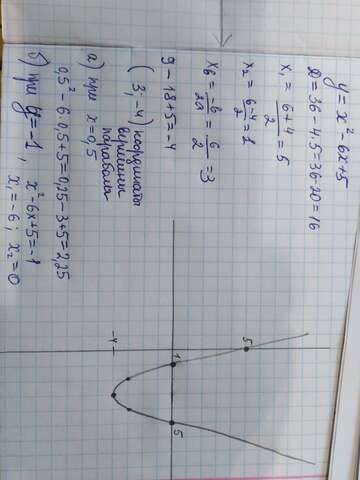 y = x² - 6x+5
D = 36 - 4·5 = 36-20 = 16
x₁ = (6+4)/2 = 5
x₂ = (6-4)/2 = 1
xв = -b/2a = 6/2 = 3
9 - 18 + 5 = -4
(3; -4) координаты
вершины
параболы
а) при x = 0,5
0,5² - 6·0,5+5 = 0,25 - 3+5 = 2,25
б) при y = -1, x² - 6x+5 = -1
x₁ = -6; x₂ = 0
5
1
5
-4